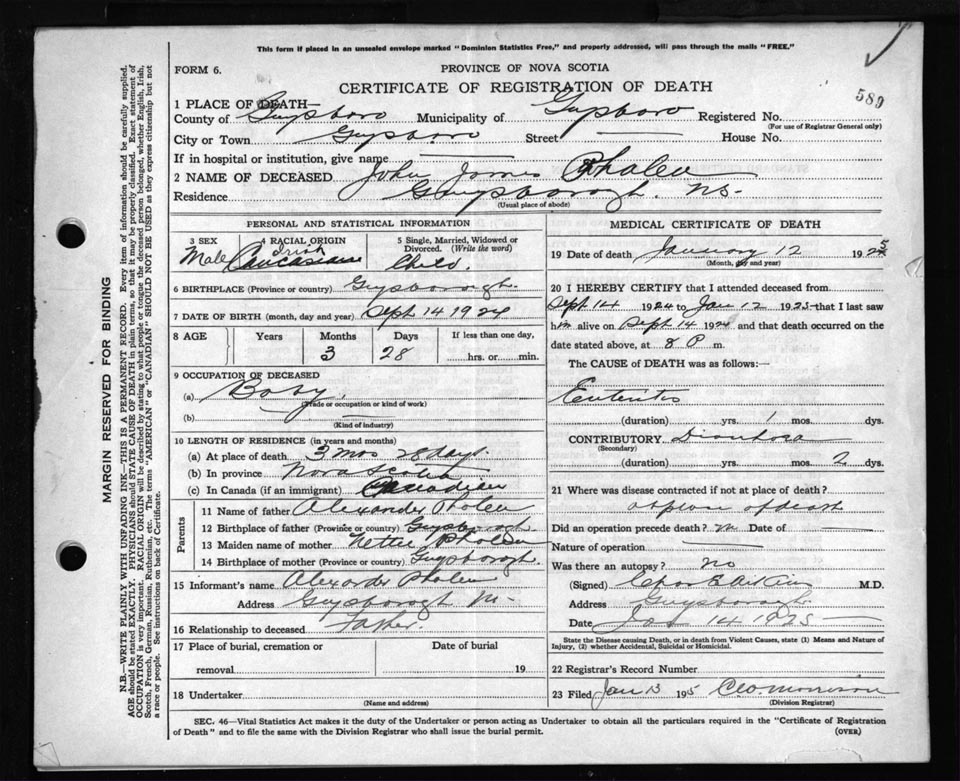 This form if placed in an unsealed envelope marked "Dominion Statistics Free," and properly addressed, will pass through the mails "FREE."
FORM 6.
PROVINCE OF NOVA SCOTIA
CERTIFICATE OF REGISTRATION OF DEATH
589
1 PLACE OF DEATH—
County of Guysboro Municipality of Guysboro Registered No.
(For use of Registrar General only)
City or Town Guysboro Street House No.
If in hospital or institution, give name
2 NAME OF DECEASED John James Phalen
Residence Guysborogh. NS-
(Usual place of abode)
PERSONAL AND STATISTICAL INFORMATION
3 SEX Male
4 RACIAL ORIGIN Irish Caucasian
5 Single, Married, Widowed or Divorced. (Write the word) Child.
6 BIRTHPLACE (Province or country) Guysborogh.
7 DATE OF BIRTH (month, day and year) Sept 14 1924
8 AGE Years Months Days If less than one day,
3 28 hrs. or min.
9 OCCUPATION OF DECEASED
(a) Baby.
(Trade or occupation or kind of work)
(b) —
(Kind of industry)
10 LENGTH OF RESIDENCE (in years and months)
(a) At place of death 3 mos 28 days.
(b) In province Nova Scotia
(c) In Canada (if an immigrant) Canadian
Parents
11 Name of father Alexander Phalen
12 Birthplace of father (Province or country) Guysborogh.
13 Maiden name of mother Nettie Phalen
14 Birthplace of mother (Province or country) Guysborogh.
15 Informant's name Alexander Phalen
Address Guysborogh
16 Relationship to deceased Father.
17 Place of burial, cremation or removal Date of burial 19
18 Undertaker
(Name and address)
MEDICAL CERTIFICATE OF DEATH
19 Date of death January 12 1925
(Month, day and year)
20 I HEREBY CERTIFY that I attended deceased from
Sept 14 1924 to Jan 12 1925- that I last saw
him alive on Sept 14 1924 and that death occurred on the
date stated above, at 8 P m.
The CAUSE OF DEATH was as follows:—
Enteritis
(duration) yrs. 1 mos. dys.
CONTRIBUTORY Diarrhoea
(Secondary)
(duration) yrs. mos. 2 dys.
21 Where was disease contracted if not at place of death?
at place of death
Did an operation precede death? Date of
Nature of operation
Was there an autopsy? no
(Signed) M.D.
Address Guysborogh
Date Jan 14 1925
State the Disease causing Death, or in death from Violent Causes, state (1) Means and Nature of Injury, (2) whether Accidental, Suicidal or Homicidal.
22 Registrar's Record Number
23 Filed Jan 13 195 Morrison
(Division Registrar)
SEC. 46—Vital Statistics Act makes it the duty of the Undertaker or person acting as Undertaker to obtain all the particulars required in the "Certificate of Registration
of Death" and to file the same with the Division Registrar who shall issue the burial permit.
(OVER)
MARGIN RESERVED FOR BINDING
N.B.—WRITE PLAINLY WITH UNFADING INK—THIS IS A PERMANENT RECORD. Every item of information should be carefully supplied.
AGE should be stated EXACTLY. PHYSICIANS should STATE CAUSE OF DEATH in plain terms, so that it may be properly classified. Exact statement of
OCCUPATION is very important. RACIAL ORIGIN will be described by stating to what people or tongue the deceased person belonged, whether English, Irish,
Scotch, French, German, Russian, Ruthenian, etc. The terms "AMERICAN" or "CANADIAN" SHOULD NOT BE USED as they express citizenship but not
a race or people. See instructions on back of Certificate.